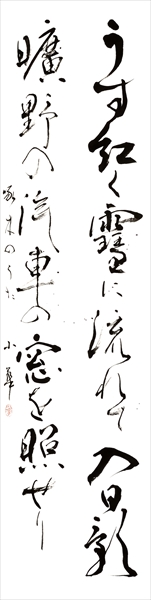 うす紅く雪に流れて入日影
曠野の汽車の窓を照せり
啄木のうた 小華